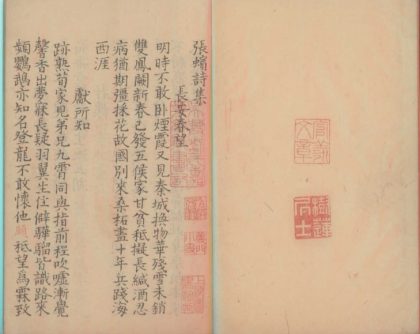 張蠙詩集
長安春望
明時不敢卧煙霞又見秦城換物華殘雪未銷
雙鳳闕新春已發五侯家甘貧秪擬長緘酒忍
病猶期彊採花故國別來桑柘盡十年兵踐海
西涯
獻所知
跡熟荀家見弟兄九霄同與指前程吹噓漸覺
馨香出夢寐長疑羽翼生住僻驊騮皆識路來
頻鸚鵡亦知名登龍不敢懷他願秪望爲霖致